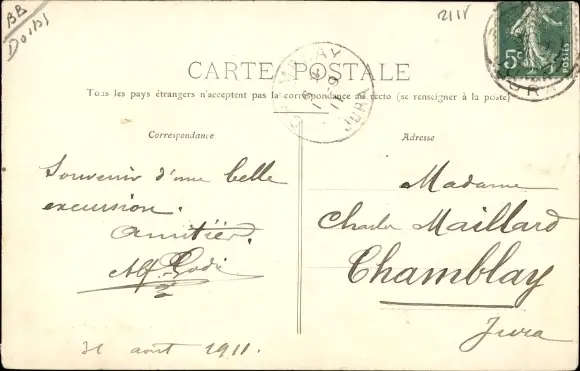 BB
Doubs
CHAMBLAY
JURA
5c
POSTES
JURA
CARTE POSTALE
Tous les pays étrangers n'acceptent pas la correspondance au recto (se renseigner à la poste)
Correspondance
Souvenir d'une belle
excursion.
Amitiés.
31 août 1911.
Adresse
Madame
Charles Maillard
Chamblay
Jura